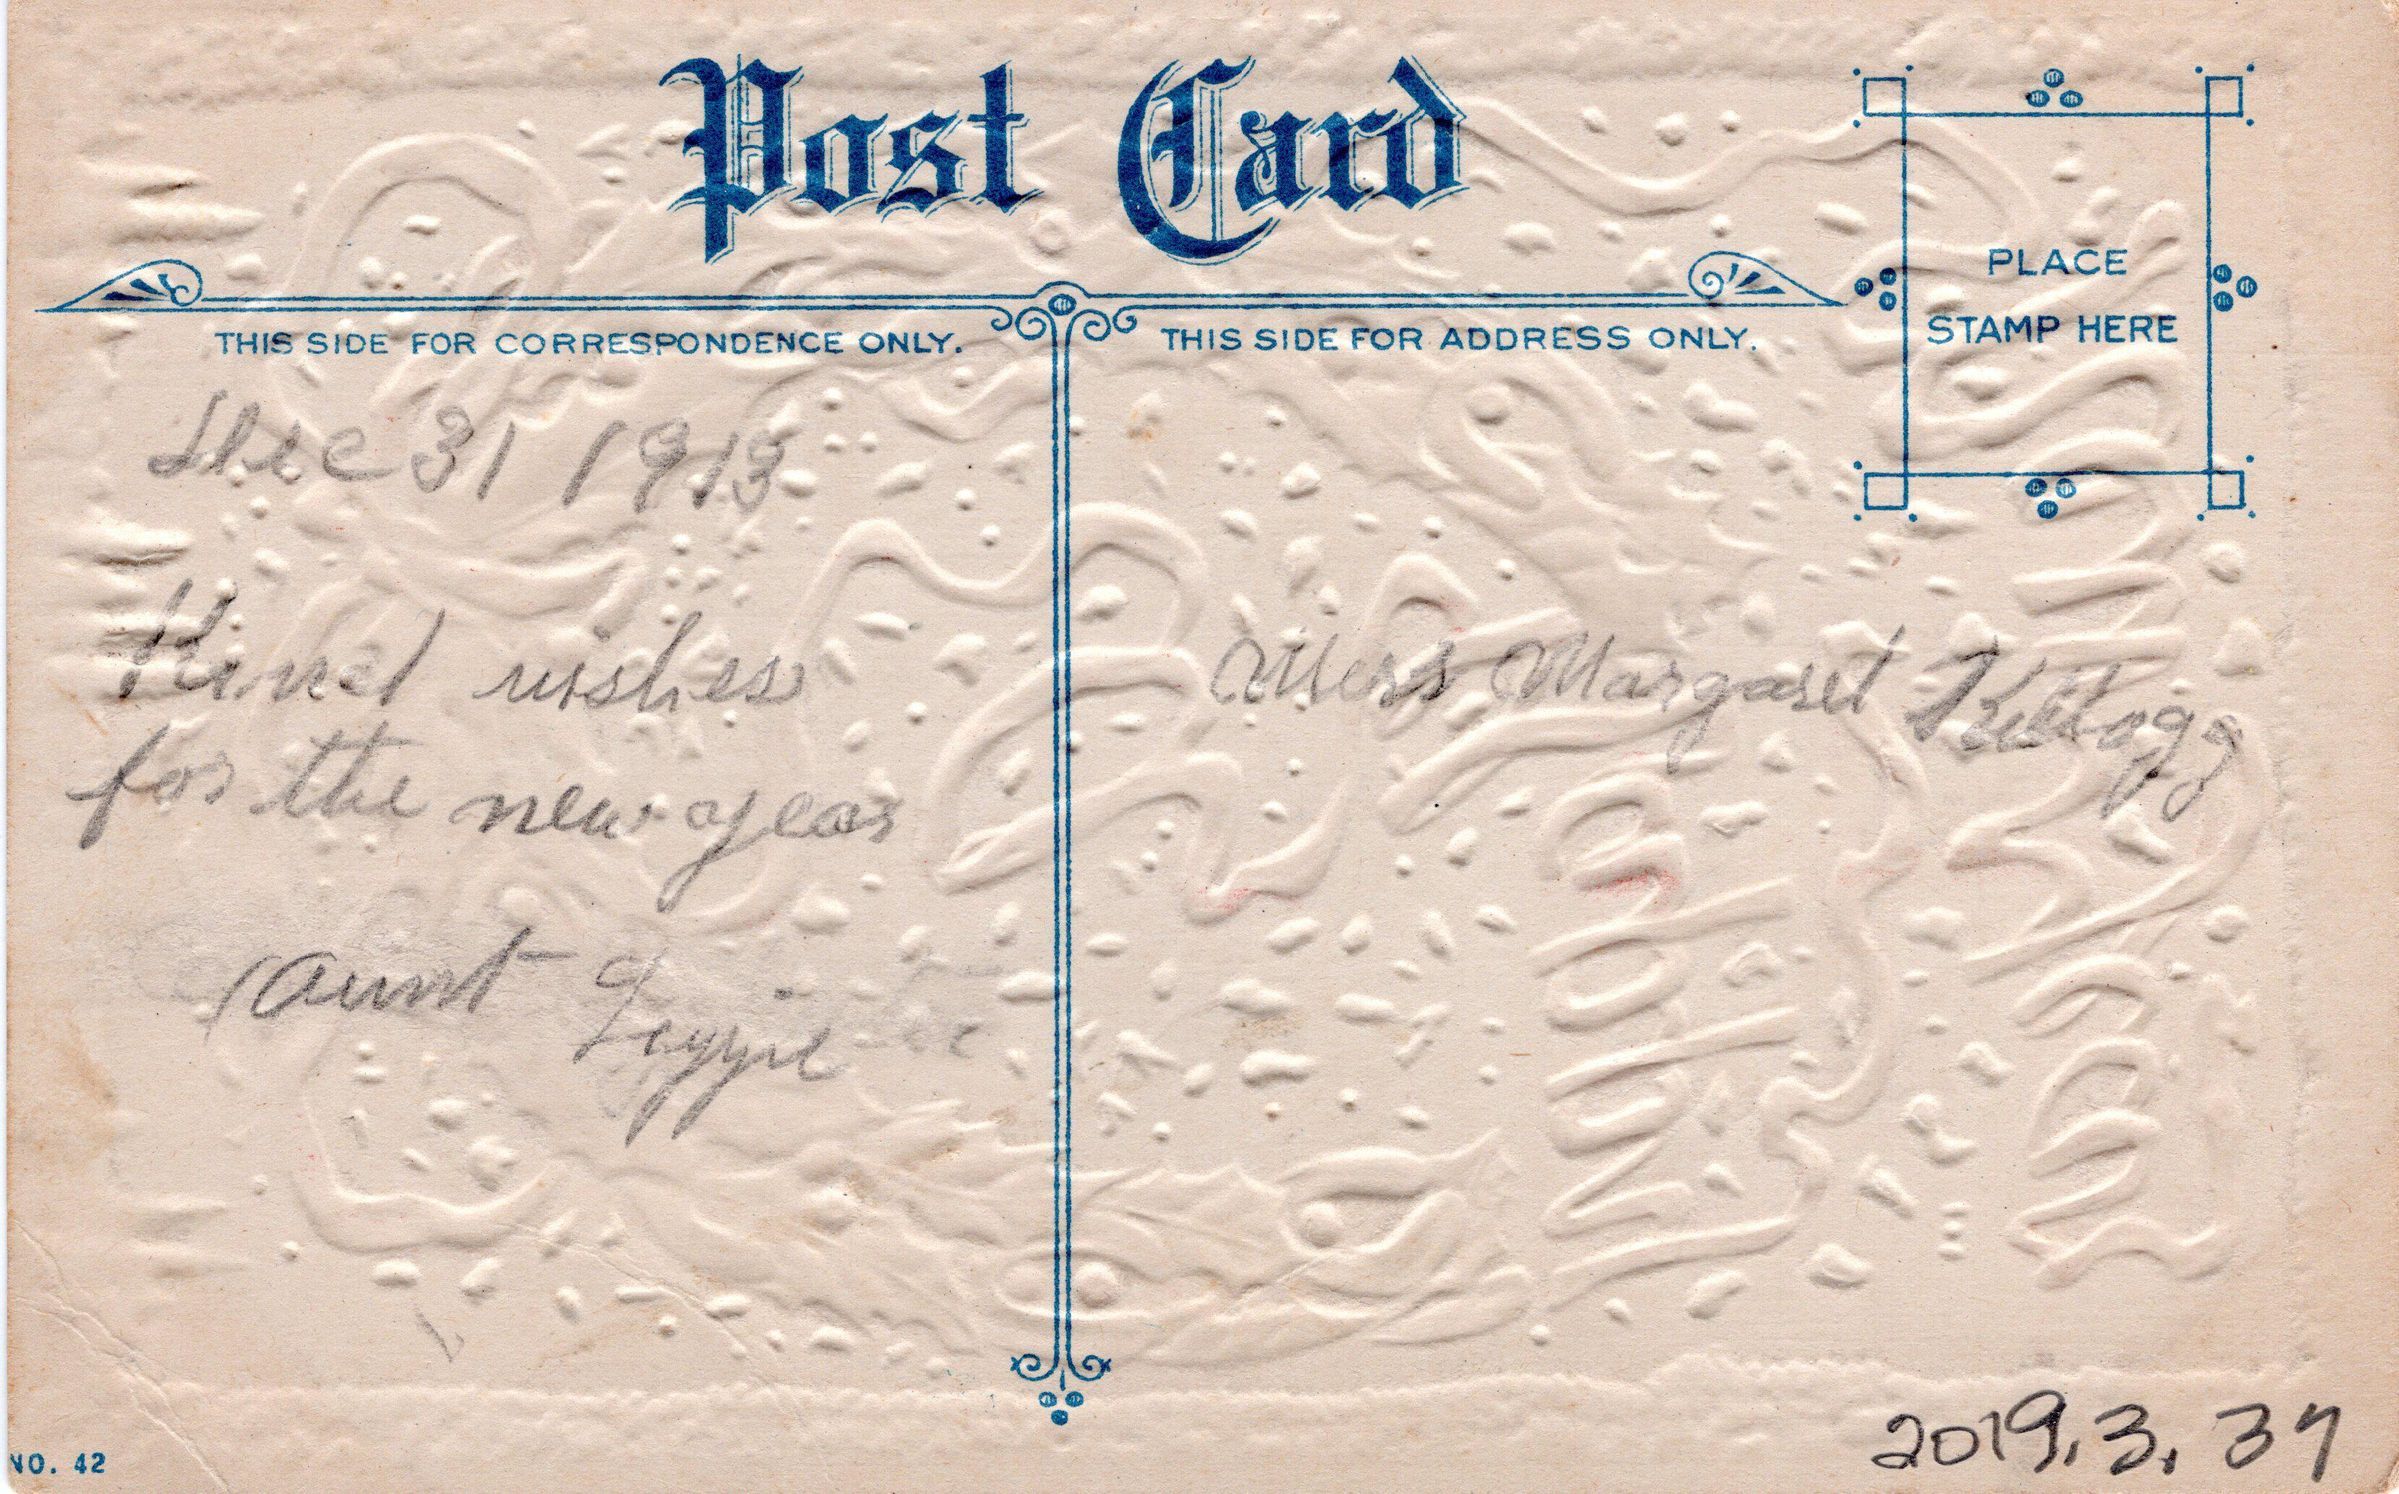 Post Card
PLACE
STAMP HERE
THIS SIDE FOR CORRESPONDENCE ONLY.
THIS SIDE FOR ADDRESS ONLY.
Dec 31 1913
Kind wishes
for the new year
Aunt
Miss Margaret Kellogg
NO. 42
2019.3.37